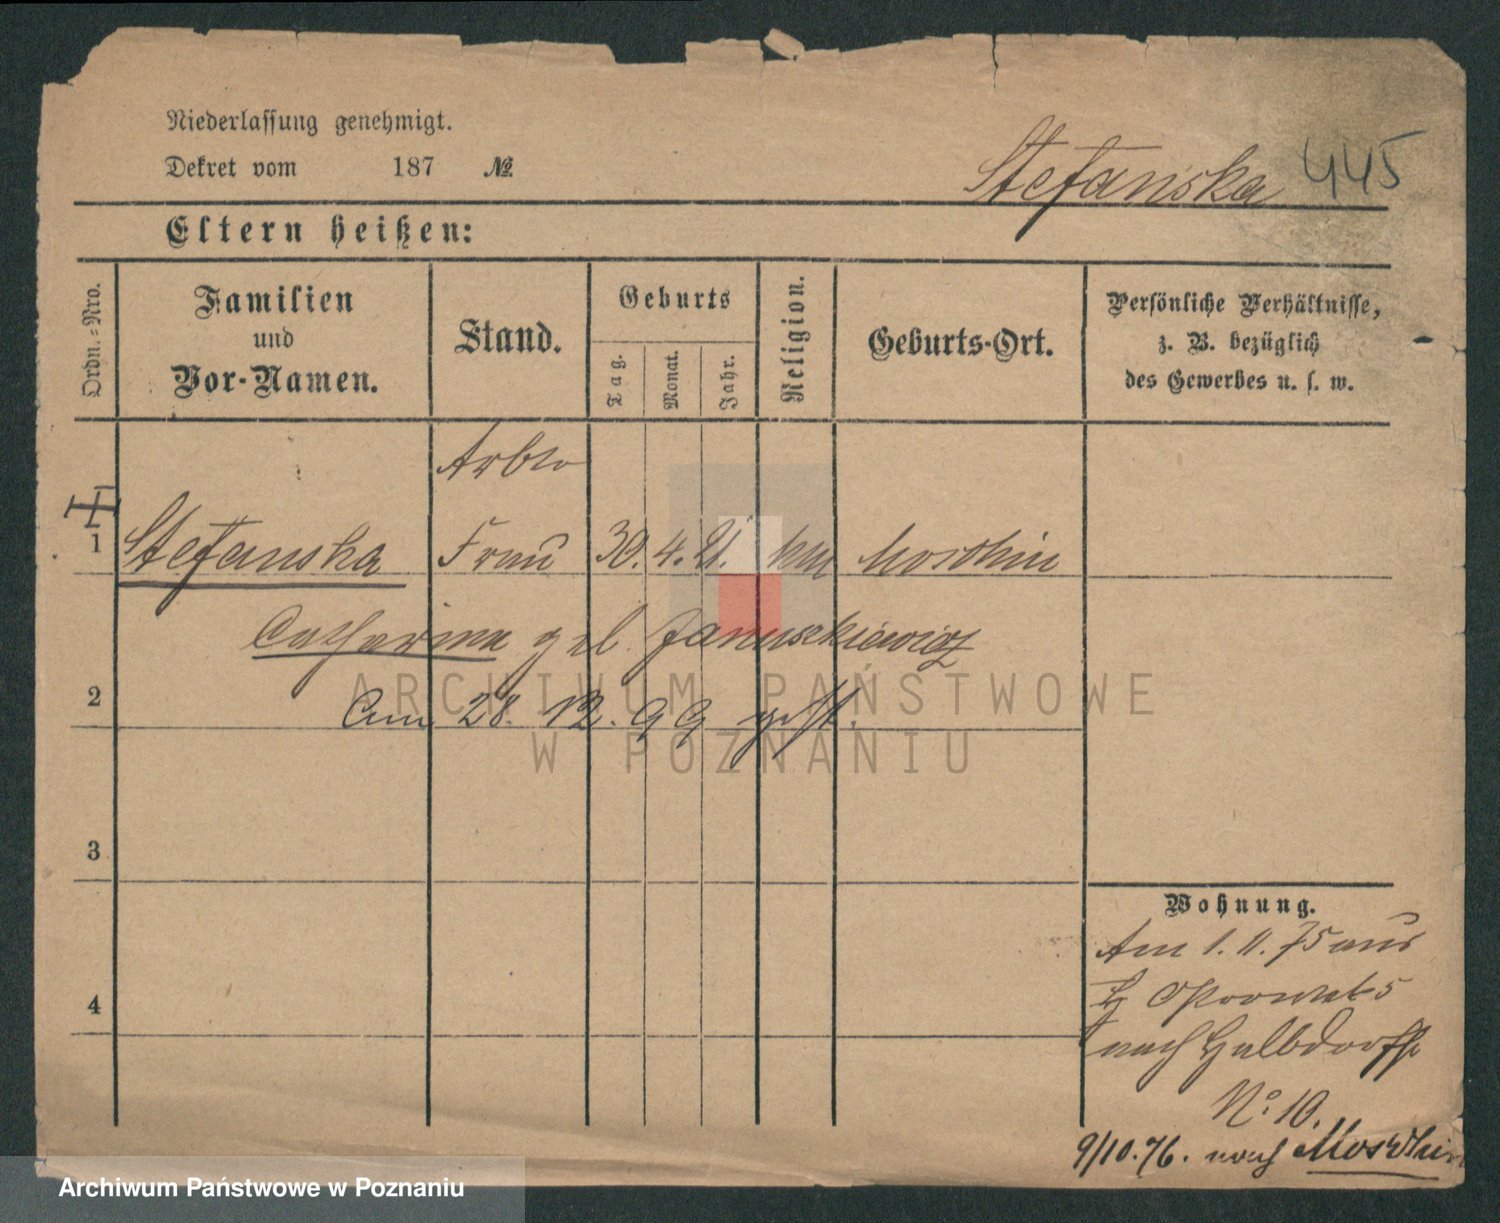 Niederlassung genehmigt.
Dekret vom 187 No.
Stefanska 445
Eltern heißen:
Ordn.-Nro.
Familien
und
Vor-Namen.
Stand.
Geburts
Tag.
Monat.
Jahr.
Religion.
Geburts-Ort.
Persönliche Verhältnisse,
z. B. bezüglich
des Gewerbes u. s. w.
Arbtr
1 Stefanska Frau 30. 4. 21. Moschin
Catharina geb. Januszkiewicz
2 Am 28. 12. 99 gest.
3
4
Wohnung.
Am 1. 11. 75 aus
nach Halbdorfstr
No: 10.
9/10.76. nach Moschin
ARCHIWUM PAŃSTWOWE
W POZNANIU
Archiwum Państwowe w Poznaniu